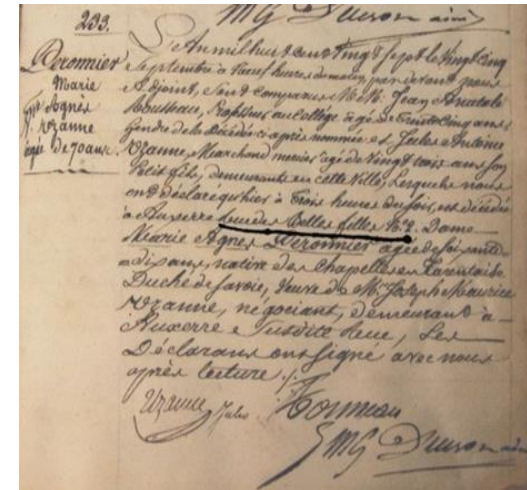 233.
MG Ducron adj
Peronnier
Marie
Agnès
Vve Uzanne
agée de 70 ans
L'An mil huit cent vingt sept le vingt cinq
Septembre à neuf heures du matin, par devant nous
Adjoint, sont comparus M.M. Jean Anatole
Professeur au Collège agé de Trente Cinq ans,
Gendre de la Décédée ci après nommée et Jules Antoine
Uzanne, Marchand mercier, agé de Vingt trois ans son
Petit fils, demeurants en cette Ville, Lesquels nous
ont déclaré qu'hier à Trois heures du soir, est décédée
à Auxerre rue des Belles filles N° 2. Dame
Marie Agnès Peronnier agée de soixante
dix ans, native des Chapelles en Tarentaise
Duché de Savoie, Veuve de Mr Joseph Maurice
Uzanne, négociant, demeurant à
Auxerre susdite Rue, Les
Déclarans ont signé avec nous
après lecture ./.
Uzanne Jules
MG Ducron adj